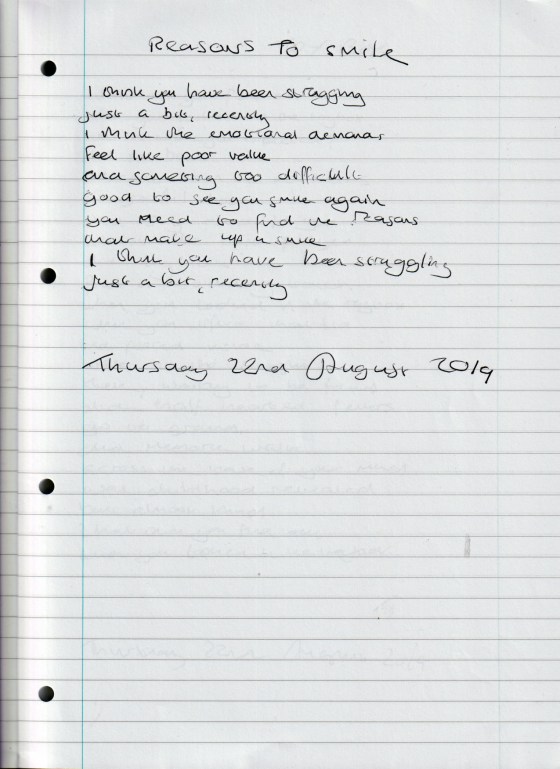 Reasons To smile
I think you have been struggling
just a bit, recently
I think the emotional demands
Feel like poor value
and something too difficult
Good to see you smile again
you need to find the Reasons
that make up a smile
I think you have been struggling
just a bit, recently
Thursday 22nd August 2019